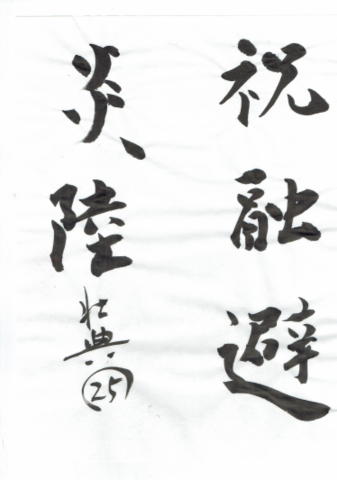 祝融避
炎陸
壮典
25